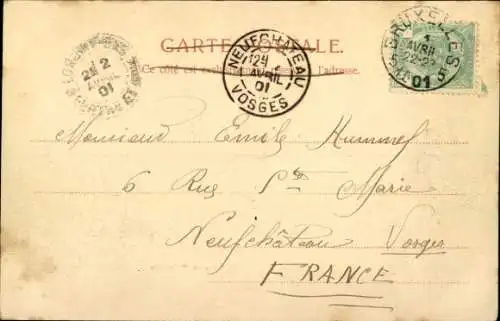 CARTE POSTALE.
Ce côté est exclusivement réservé à l'adresse.
2
AVRIL
01
NEUFCHATEAU
AVRIL
01
VOSGES
BRUXELLES
1
AVRIL
22-23
01
Monsieur Emile Hummel
6 Rue Ste Marie
Neufchâteau Vosges
FRANCE